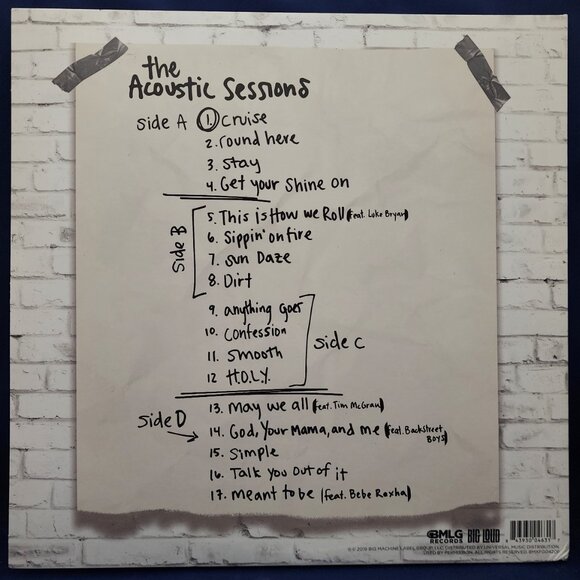 the
Acoustic Sessions
side A 1. cruise
2. round here
3. stay
4. Get your Shine on
Side B
5. This is How we Roll (feat. Luke Bryan)
6. Sippin' on fire
7. sun Daze
8. Dirt
9. anything Goes
10. Confession
11. Smooth
12 H.O.L.Y.
side C
13. may we all (feat. Tim McGraw)
side D
14. God, Your Mama, and me (feat. Backstreet
Boys)
15. Simple
16. Talk You Out of it
17. meant to be (feat. Bebe Rexha)
BMLG
RECORDS
BIG LOUD